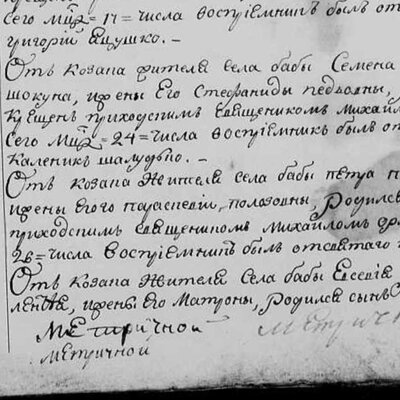 сего мца = 17 = числа воспріемникъ былъ от
григорій ящушко. —
Отъ козака жителя села бабы Семена
шокуна, жены Его Стефаниды
крещенъ приходскимъ священикомъ михайл
сего мца = 24 = числа воспріемникъ былъ от
каленикъ
Отъ козака жителя села бабы петра
жены Его параскевіи, родился
приходскимъ священикомъ михайломъ
26 = числа воспріемникъ былъ
Отъ козака жителя села бабы Евсевія
жены Его Матроны, родился сынъ
Метричной
Метричной